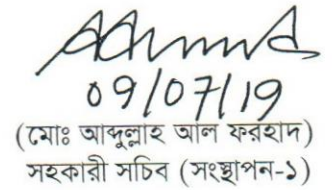 09/07/19
(মোঃ আব্দুল্লাহ আল ফরহাদ)
সহকারী সচিব (সংস্থাপন-১)